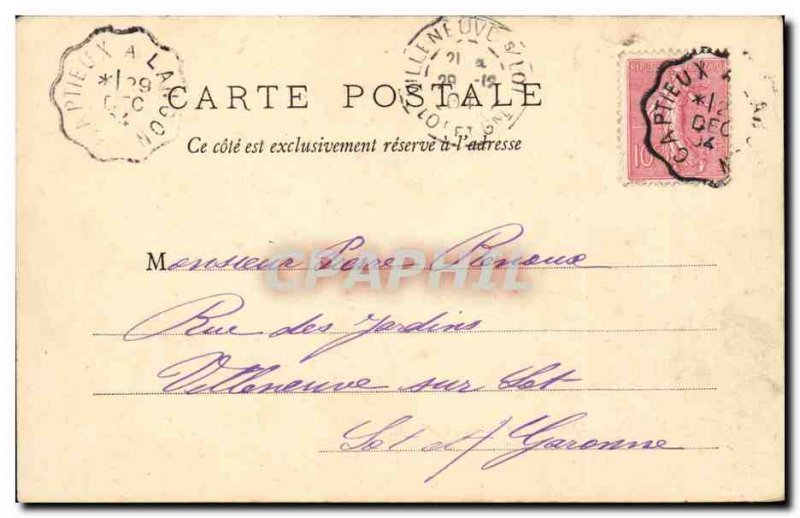 CAPTIEUX A LANGON
*1 29
DEC
04
VILLENEUVE S/LOT
LOT ET GNE
CARTE POSTALE
Ce côté est exclusivement réservé à l'adresse
10
CAPTIEUX A
DEC
04
CPAPHIL
Monsieur Pierre Renoux
Rue des Jardins
Villeneuve sur Lot
Lot et Garonne